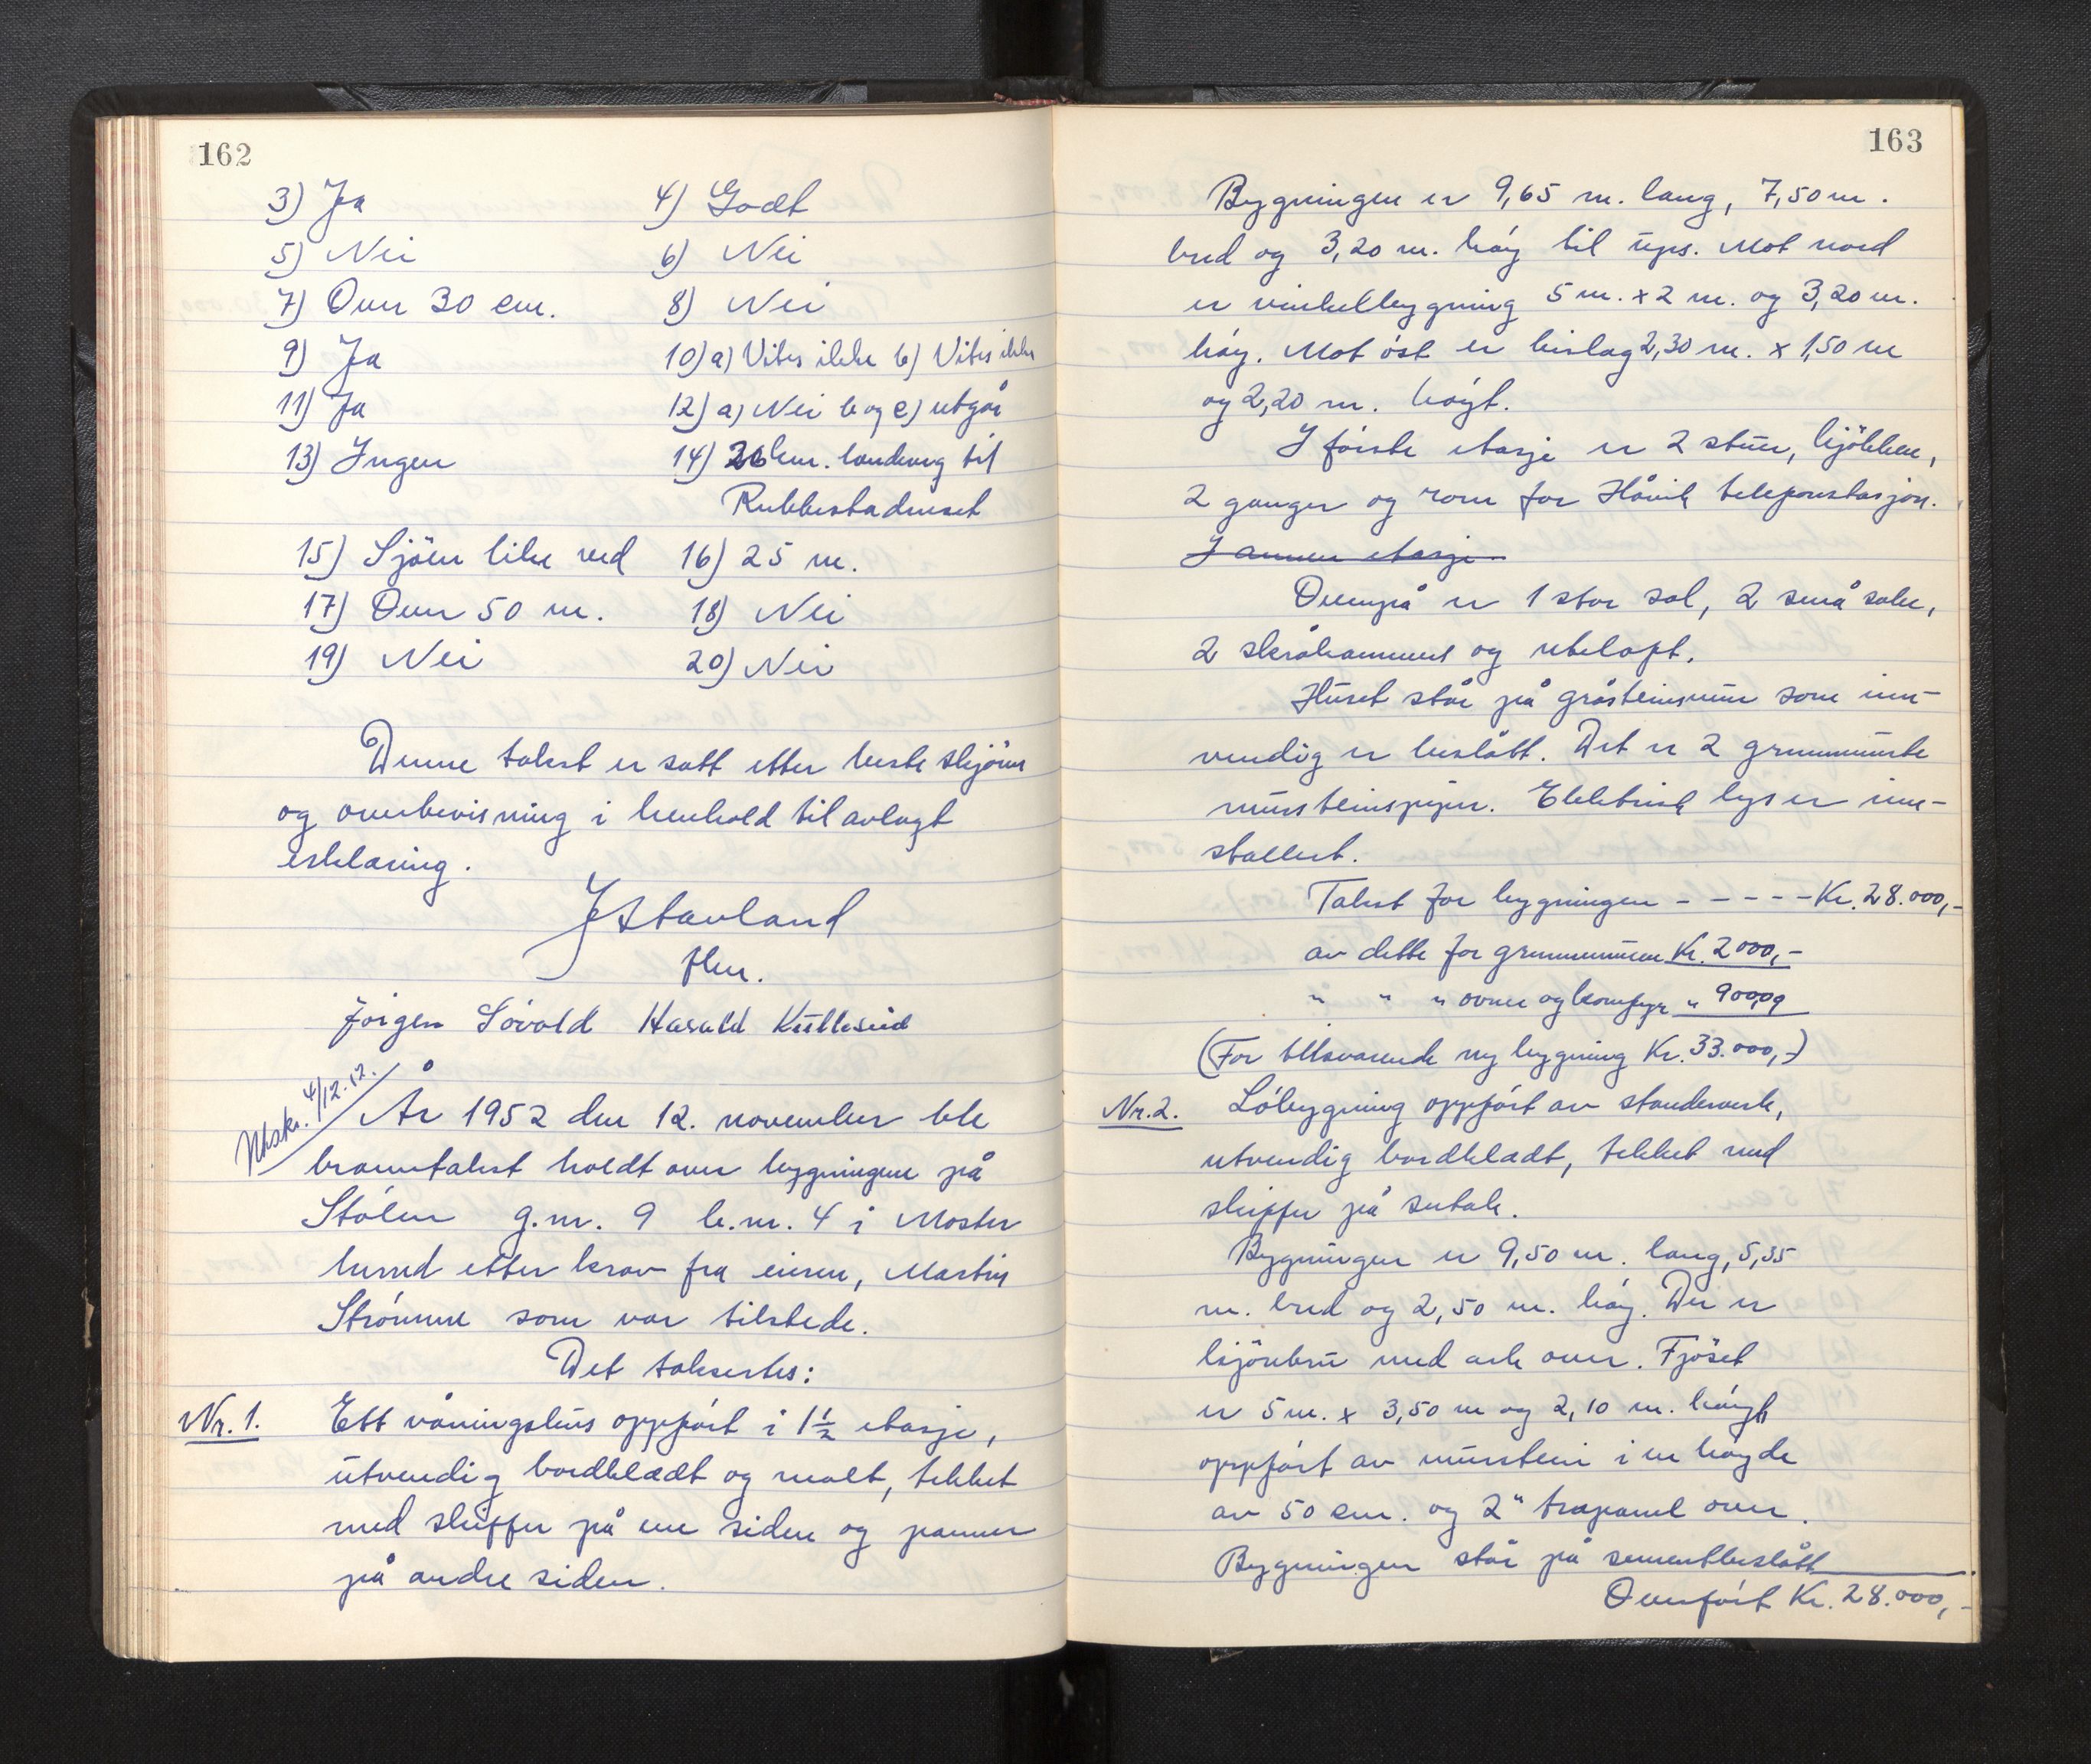 162
3) Ja 4) Godt
5) Nei 6) Nei
7) Over 30 cm. 8) Nei
9) Ja 10) a) Vites ikke b) Vites ikke
11) Ja 12) a) Nei b og c) utgår
13) Ingen 14) 26 km. landveg til
Rubbestadneset
15) Sjöen like ved 16) 25 m.
17) Over 50 m. 18) Nei
19) Nei 20) Nei
Denne takst er satt etter beste skjönn
og overbevisning i henhold til avlagt
erklæring.
J Stavland
flm.
Jörgen Lövold Harald Kulleseid
Utskr. 4/12.12.
År 1952 den 12. november ble
branntakst holdt over bygningene på
Stölen g.nr. 9 b.nr. 4 i Moster
herred etter krav fra eieren, Martin
Strömme som var tilstede.
Det takseres:
Nr. 1. Ett våningshus oppfört i 1½ etasje,
utvendig bordkledt og malt, tekket
med skiffer på ene siden og panner
på andre siden.
163
Bygningen er 9,65 m. lang, 7,50 m.
bred og 3,20 m. höy til ups. Mot nord
er vinkelbygning 5 m. x 2 m. og 3,20 m.
höy. Mot öst er bislag 2,30 m. x 1,50 m
og 2,20 m. höyt.
I förste etasje er 2 stuer, kjökken,
2 ganger og rom for Håvik telefonstasjon.
I annen etasje
Ovenpå er 1 stor sal, 2 små saler,
2 skråkammers og uteloft.
Huset står på gråsteinsmur som inn-
vendig er beslått. Det er 2 grunnmurte
mursteinspiper. Elektrisk lys er inn-
stallert.
Takst for bygningen - - - - - Kr. 28.000,-
av dette for grunnmuren Kr. 2000,-
" " " ovner og komfyr " 900,00
(For tilsvarende ny bygning Kr. 33.000,-)
Nr. 2. Löbygning oppfört av standerverk,
utvendig bordkledt, tekket med
skiffer på sutak.
Bygningen er 9,50 m. lang, 5,35
m. bred og 2,50 m. höy. Der er
kjörebru med ark over. Fjöset
er 5 m. x 3,50 m og 2,10 m. höyt
oppfört av murstein i en höyde
av 50 cm. og 2" trepanel over.
Bygningen står på sementbeslått
Overfört Kr. 28.000,-